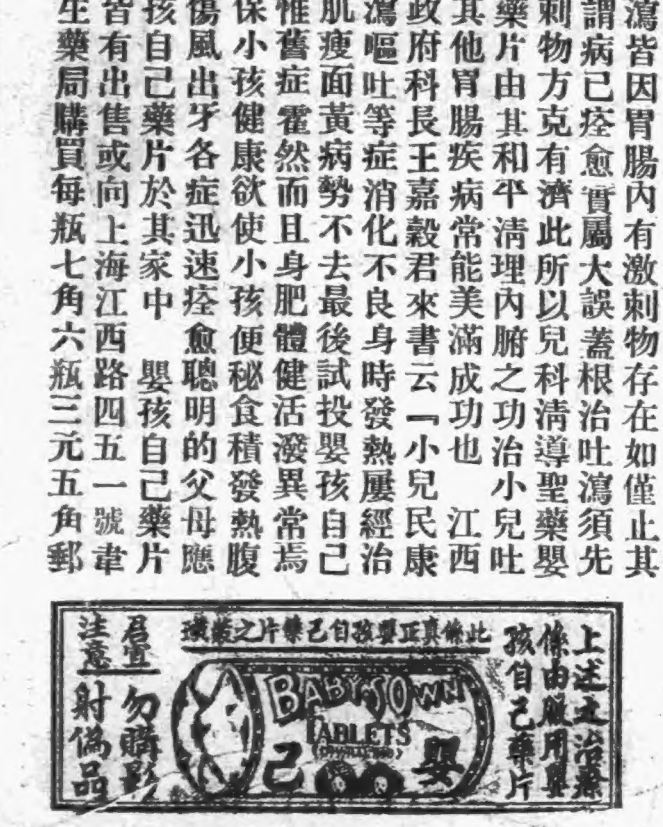 瀉皆因胃腸內有激刺物存在如僅止其
謂病已痊愈實屬大誤蓋根治吐瀉須先
刺物方克有濟此所以兒科淸導聖藥嬰
藥片由其和平淸理內腑之功治小兒吐
其他胃腸疾病常能美滿成功也 江西
政府科長王嘉穀君來書云『小兒民康
瀉嘔吐等症消化不良身時發熱屢經治
肌瘦面黃病勢不去最後試投嬰孩自己
惟舊症霍然而且身肥體健活潑異常焉
保小孩健康欲使小孩便秘食積發熱腹
傷風出牙各症迅速痊愈聰明的父母應
孩自己藥片於其家中 嬰孩自己藥片
皆有出售或向上海江西路四五一號韋
生藥局購買每瓶七角六瓶三元五角郵
上述之治療
係由服用嬰
孩自己藥片
此係真正嬰孩自己藥片之
BABY'S OWN
TABLETS
嬰
己
君宜
注意
勿購影
射偽品